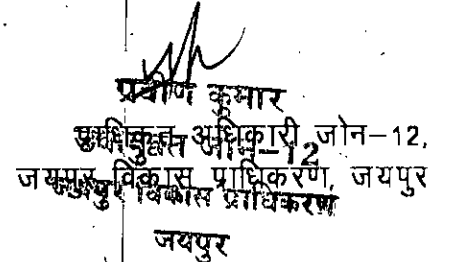 प्रवीण कुमार
प्राधिकृत अधिकारी जोन-12,
जयपुर विकास प्राधिकरण, जयपुर
जयपुर विकास प्राधिकरण
जयपुर